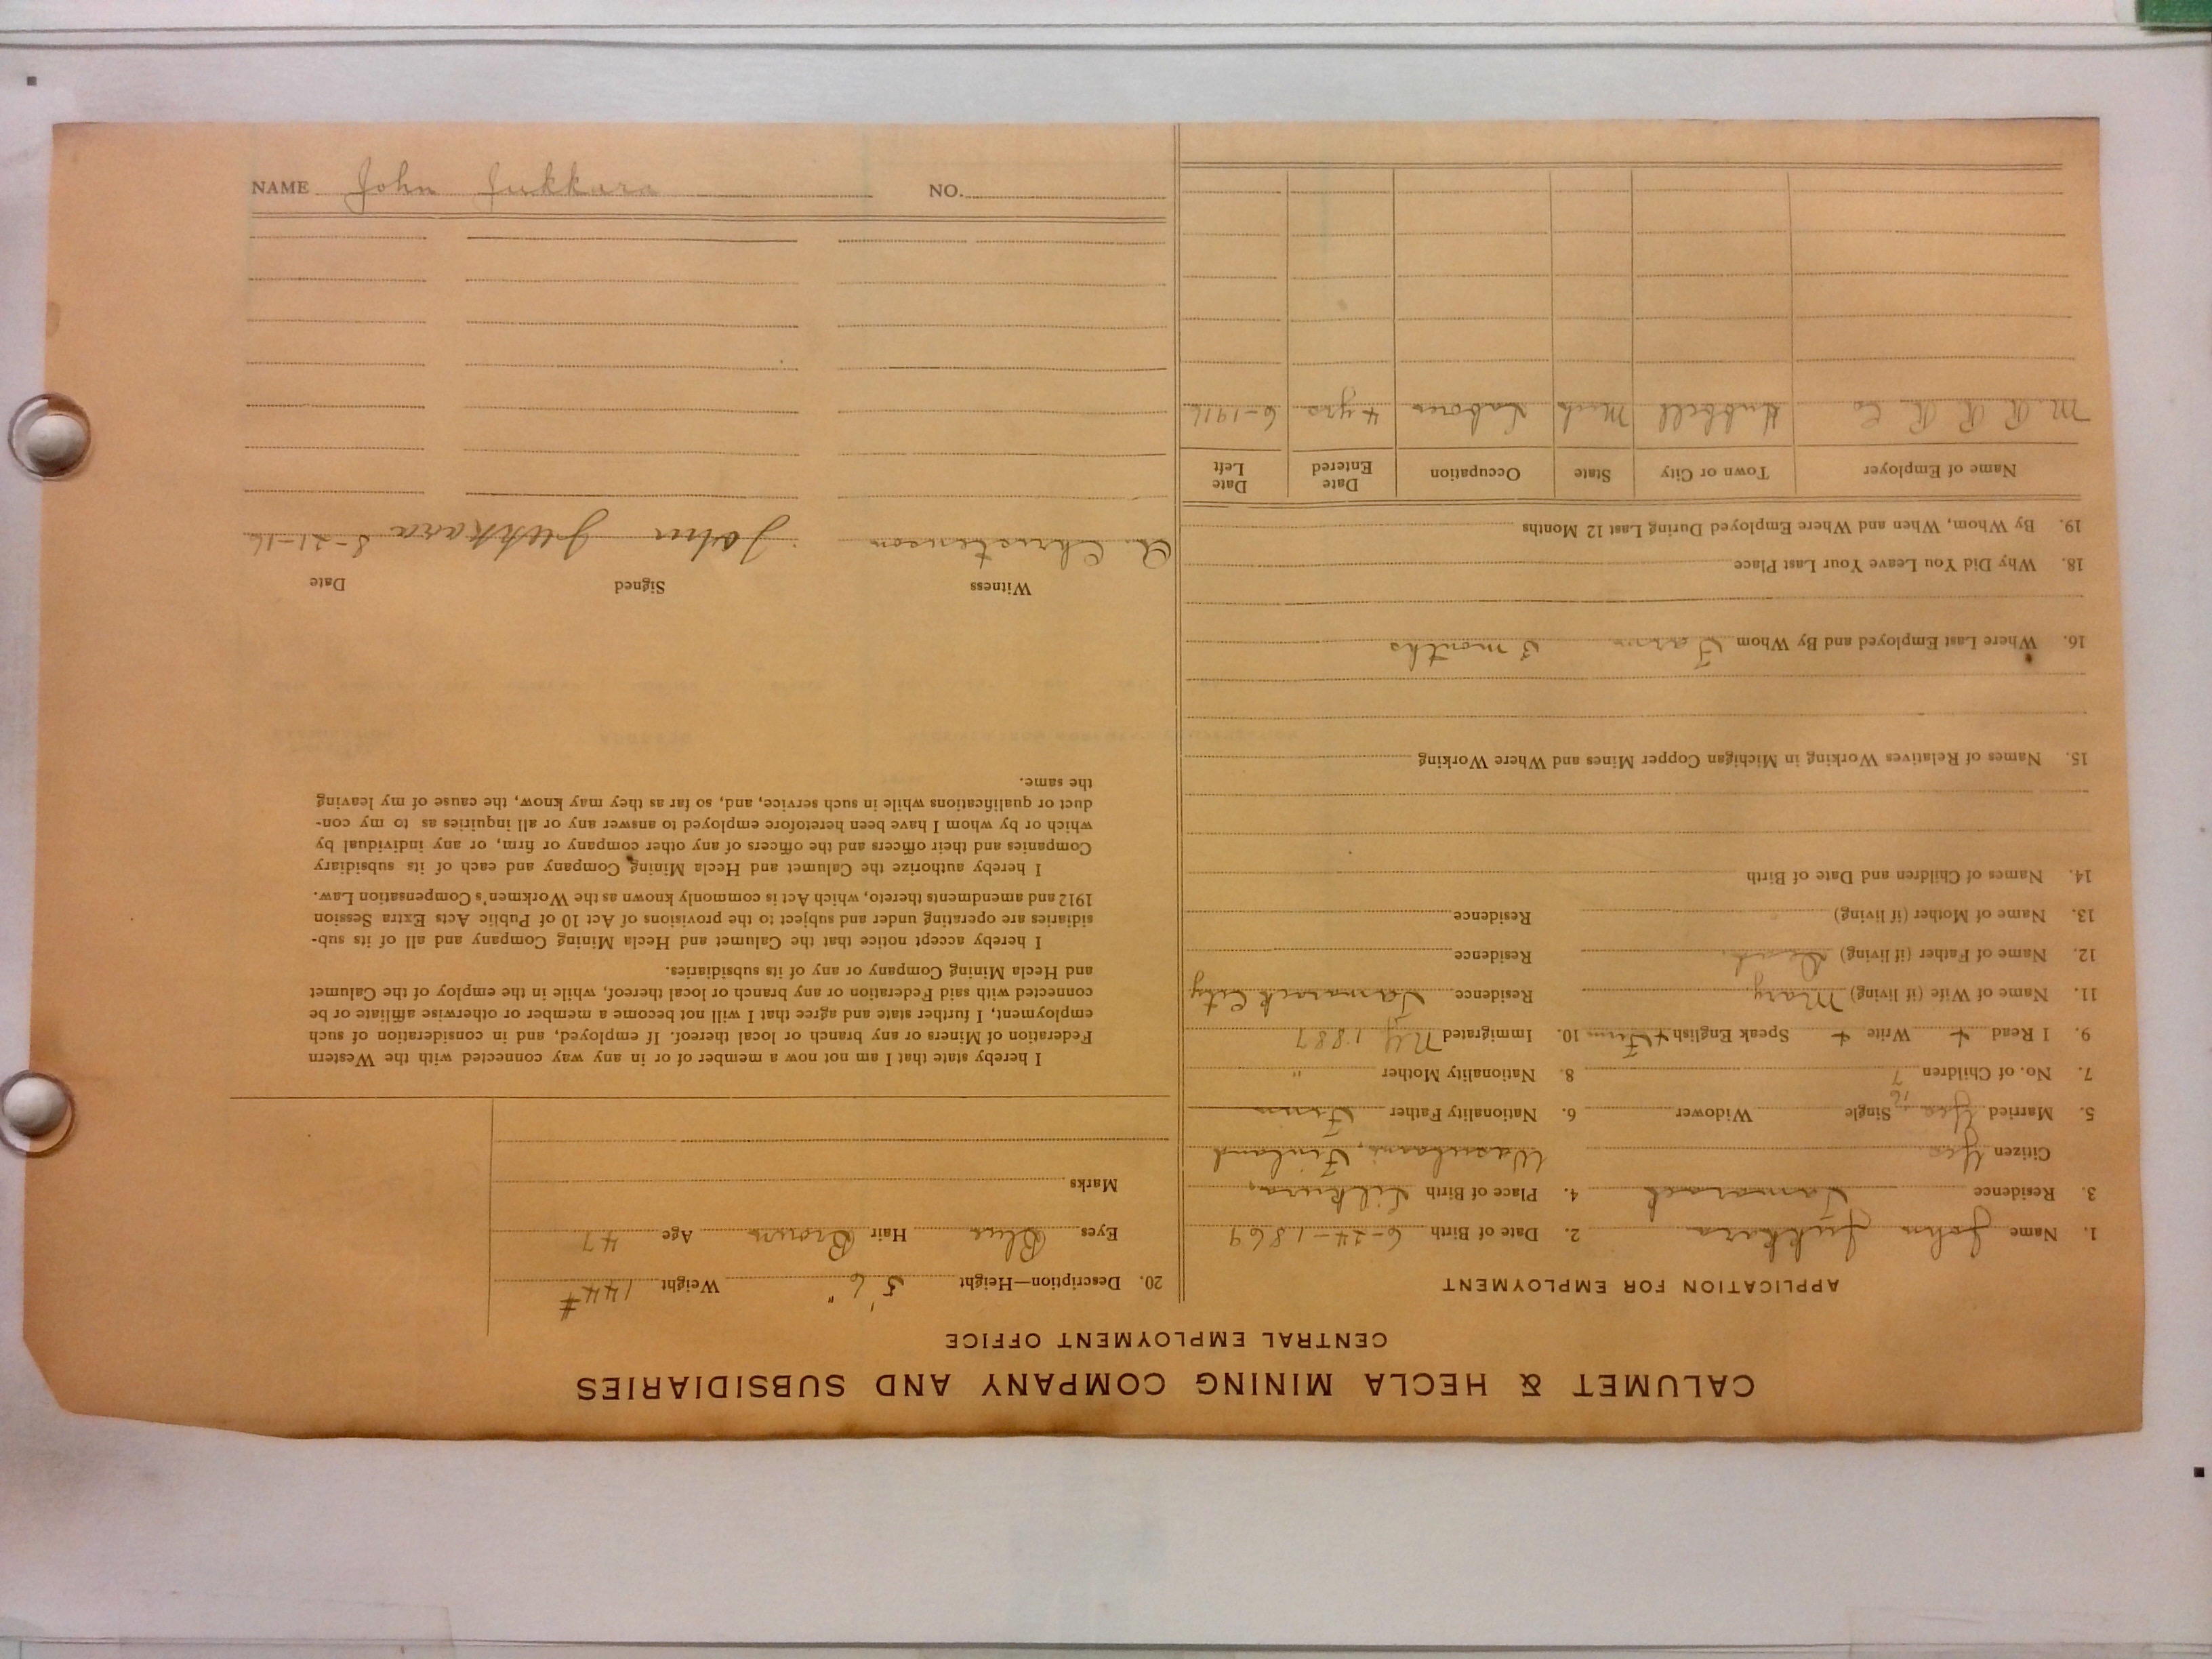 CALUMET & HECLA MINING COMPANY AND SUBSIDIARIES
CENTRAL EMPLOYMENT OFFICE
APPLICATION FOR EMPLOYMENT
1. Name John Jukkara 2. Date of Birth 6-24-1869
3. Residence Tamarack 4. Place of Birth
Citizen Yes Finland
5. Married Yes Single Widower 6. Nationality Father Finn
7. No. of Children 7 8. Nationality Mother "
9. I Read + Write + Speak English + Finn 10. Immigrated N.Y. 1887
11. Name of Wife (if living) Mary Residence Tamarack City
12. Name of Father (if living) Dead Residence
13. Name of Mother (if living) Residence
14. Names of Children and Date of Birth
15. Names of Relatives Working in Michigan Copper Mines and Where Working
16. Where Last Employed and By Whom Farm 3 months
18. Why Did You Leave Your Last Place
19. By Whom, When and Where Employed During Last 12 Months
Name of Employer Town or City State Occupation Date Entered Date Left
M. R. R. R. Co Hubbell Mich Labour 4 yrs 6-1916
20. Description—Height 5' 6" Weight 144#
Eyes Blue Hair Brown Age 47
Marks
I hereby state that I am not now a member of or in any way connected with the Western
Federation of Miners or any branch or local thereof. If employed, and in consideration of such
employment, I further state and agree that I will not become a member or otherwise affiliate or be
connected with said Federation or any branch or local thereof, while in the employ of the Calumet
and Hecla Mining Company or any of its subsidiaries.
I hereby accept notice that the Calumet and Hecla Mining Company and all of its sub-
sidiaries are operating under and subject to the provisions of Act 10 of Public Acts Extra Session
1912 and amendments thereto, which Act is commonly known as the Workmen's Compensation Law.
I hereby authorize the Calumet and Hecla Mining Company and each of its subsidiary
Companies and their officers and the officers of any other company or firm, or any individual by
which or by whom I have been heretofore employed to answer any or all inquiries as to my con-
duct or qualifications while in such service, and, so far as they may know, the cause of my leaving
the same.
Witness Signed Date
A. Christenson John Jukkara 8-21-16
NAME John Jukkara NO.